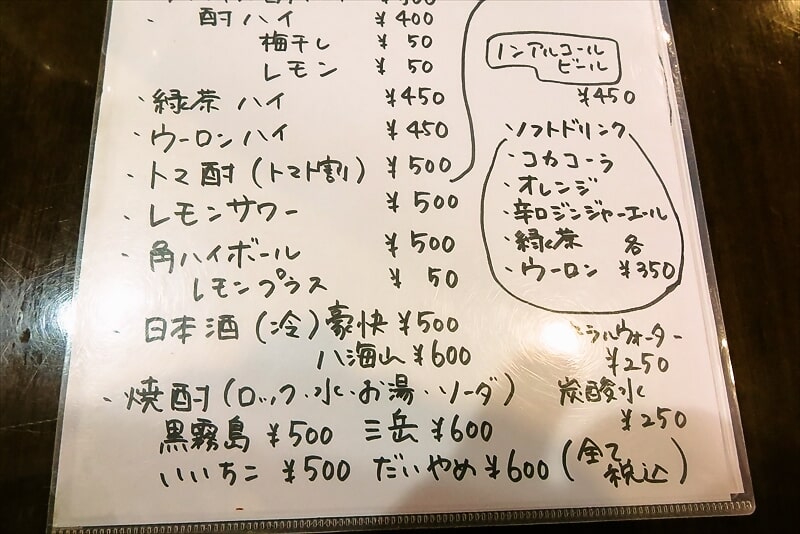 ・酎ハイ ¥400
梅干し ¥50
レモン ¥50
・緑茶ハイ ¥450
・ウーロンハイ ¥450
・トマ酎(トマト割) ¥500
・レモンサワー ¥500
・角ハイボール ¥500
レモンプラス ¥50
・日本酒(冷)豪快 ¥500
八海山 ¥600
・焼酎(ロック・水・お湯・ソーダ)
黒霧島 ¥500 三岳 ¥600
いいちこ ¥500 だいやめ ¥600 (全て税込)
ノンアルコール
ビール
¥450
ソフトドリンク
・コカコーラ
・オレンジ
・辛口ジンジャーエール
・緑茶 各
・ウーロン ¥350
ラルウォーター
¥250
炭酸水
¥250